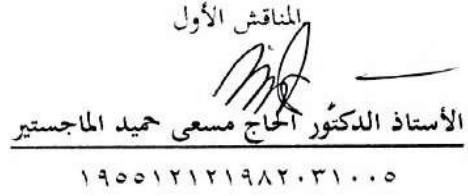 المناقش الأول
الأستاذ الدكتور الحاج مسعى حميد الماجستير
١٩٥٥١٢١٢١٩٨٢٠٣١٠٠٥